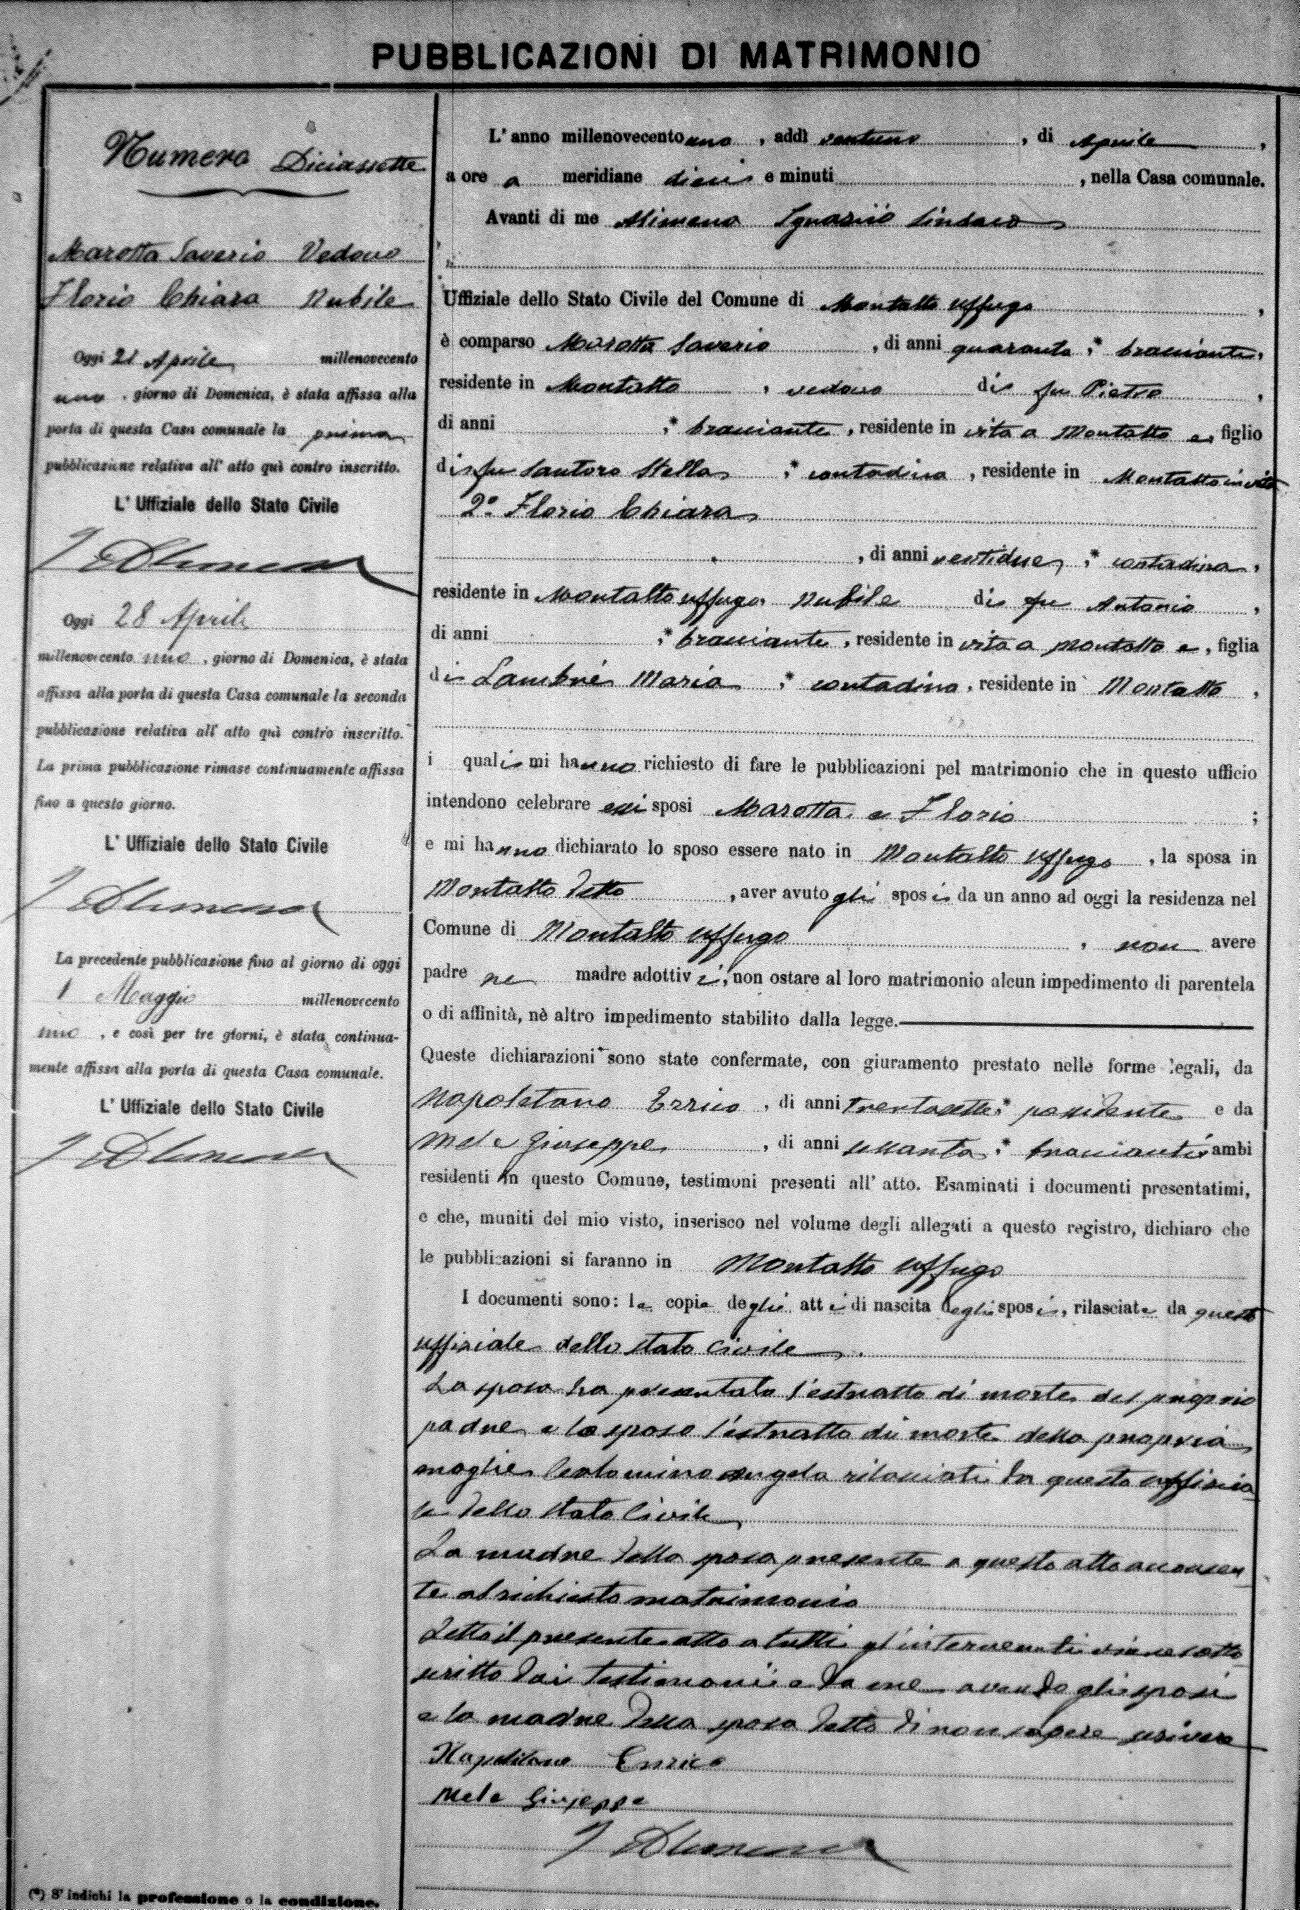 PUBBLICAZIONI DI MATRIMONIO
Numero Diciassette
Marotta Saverio Vedovo
Florio Chiara Nubile
Oggi 21 Aprile millenovecento
uno, giorno di Domenica, è stata affissa alla
porta di questa Casa comunale la prima
pubblicazione relativa all' atto quì contro inscritto.
L' Uffiziale dello Stato Civile
Oggi 28 Aprile
millenovecento uno, giorno di Domenica, è stata
affissa alla porta di questa Casa comunale la seconda
pubblicazione relativa all' atto quì contro inscritto.
La prima pubblicazione rimase continuamente affissa
fino a questo giorno.
L' Uffiziale dello Stato Civile
La precedente pubblicazione fino al giorno di oggi
1 Maggio millenovecento
uno, e così per tre giorni, è stata continua-
mente affissa alla porta di questa Casa comunale.
L' Uffiziale dello Stato Civile
(*) S' indichi la professione o la condizione.
L' anno millenovecentouno, addì ventuno, di Aprile,
a ore a meridiane dieci e minuti , nella Casa comunale.
Avanti di me Alimena Ignazio Sindaco
Uffiziale dello Stato Civile del Comune di Montalto Uffugo,
è comparso Marotta Saverio, di anni quaranta, * bracciante,
residente in Montalto, vedovo di fu Pietro,
di anni , * bracciante, residente in vita a Montalto e, figlio
di fu Santoro Stella, * contadina, residente in Montalto in vita
2° Florio Chiara
, di anni ventidue, * contadina,
residente in Montalto Uffugo, nubile di fu Antonio,
di anni , * bracciante, residente in vita a Montalto e, figlia
di Maria, * contadina, residente in Montalto,
i quali mi hanno richiesto di fare le pubblicazioni pel matrimonio che in questo ufficio
intendono celebrare essi sposi Marotta e Florio;
e mi hanno dichiarato lo sposo essere nato in Montalto Uffugo, la sposa in
Montalto detto, aver avuto gli sposi da un anno ad oggi la residenza nel
Comune di Montalto Uffugo, non avere
padre ne madre adottivi, non ostare al loro matrimonio alcun impedimento di parentela
o di affinità, nè altro impedimento stabilito dalla legge.
Queste dichiarazioni sono state confermate, con giuramento prestato nelle forme legali, da
Napoletano Errico, di anni trentasette, * possidente e da
Mele Giuseppe, di anni sessanta, * bracciante ambi
residenti in questo Comune, testimoni presenti all' atto. Esaminati i documenti presentatimi,
e che, muniti del mio visto, inserisco nel volume degli allegati a questo registro, dichiaro che
le pubblicazioni si faranno in Montalto Uffugo
I documenti sono: le copie degli atti di nascita degli sposi, rilasciate da questo
uffiziale dello stato civile.
La sposa ha presentato l'estratto di morte del proprio
padre e lo sposo l'estratto di morte della propria
moglie Angela rilasciati da questo uffizia
le dello stato Civile
La madre della sposa presente a questo atto acconsen
te al richiesto matrimonio
Letto il presente atto a tutti gl'intervenuti viene sotto
scritto dai testimonii e da me avendo gli sposi
e la madre della sposa detto di non sapere scrivere
Napolitano Enrico
Mele Giuseppe